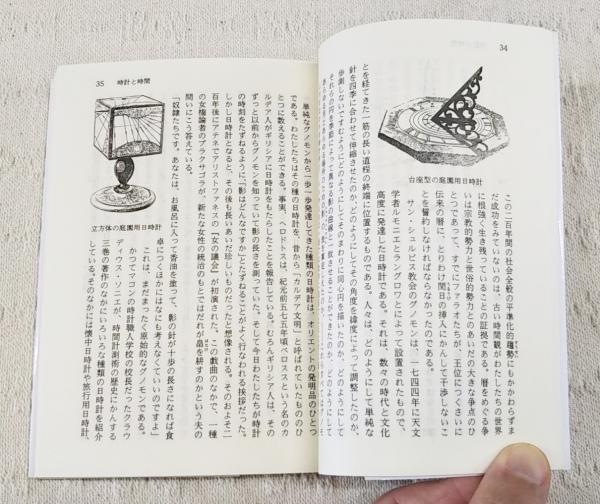 34
台座型の庭園用日時計
この二百年間の社会全般の平準化的趨勢にもかかわらずま
だ成功をみていないのは、古い時間観がわたしたちの世界
に根強く生き残っていることの証拠である。暦をめぐる争
いは宗教的勢力と世俗的勢力とのあいだの大きな争点のひ
とつであって、すでにファラオたちが、王位につくさいに
伝来の暦に、とりわけ閏日の挿入にかんして干渉しないこ
とを誓約しなければならなかったのである。
サン・シュルピス教会のグノモンは、一七四四年に天文
学者ルモニエとラングロワとによって設置されたもので、
高度に発達した日時計である。それは、数々の時代と文化
とを経てきた一筋の長い道程の終端に位置するものである。人々は、どのようにして単純な
針を四季に合わせて伸縮させたのか、どのようにしてその角度を緯度によって調整したのか、
歩測しないですむようにどのようにしてそのまわりに同心円を描いたのか、どのようにして
それらの円を季節によって異なる影の曲線に一致させることができたのか、
35 時計と時間
単純なグノモンから一歩一歩発達してきた種類の日時計は、オリエントの発明品のひとつ
である。わたしたちはその種の日時計を、昔から「カルデア文明」と呼ばれていたもののひ
とつに数えることができる。事実、ヘロドトスは、紀元前五七五年頃ベロススという名のカ
ルデア人がギリシアに日時計をもたらしたことを報告している。むろんギリシア人は、その
ずっと以前からグノモンを知っていて影の長さを測っていた。そして今日わたしたちが時計
の時刻をたずねるように「影はどんなですか」とたずねることがよく行なわれる挨拶だった。
しかし日時計となると、その後も長いあいだ珍しいものだったと想像される。そのおよそ二
百年後にアテネでアリストファネスの『女の議会』が初演された。この戯曲のなかで、一種
の女権論者のプラクサゴラが、新たな女性の統治のもとではだれが畠を耕すのかという夫の
問いにこう答えている。
「奴隷たちです。あなたは、お風呂に入って香油を塗って、影の針が十歩の長さになれば食
卓につくほかにはなにも考えなくていいのですよ」
これは、まだまったく原始的なグノモンである。
かつてマコンの時計職人学校の校長だったクラウ
ディウス・ソニエが、時間計測術の歴史にかんする
三巻の著作のなかにいろいろな種類の日時計を紹介
している。そのなかには懐中日時計や旅行用日時計、
立方体の庭園用日時計